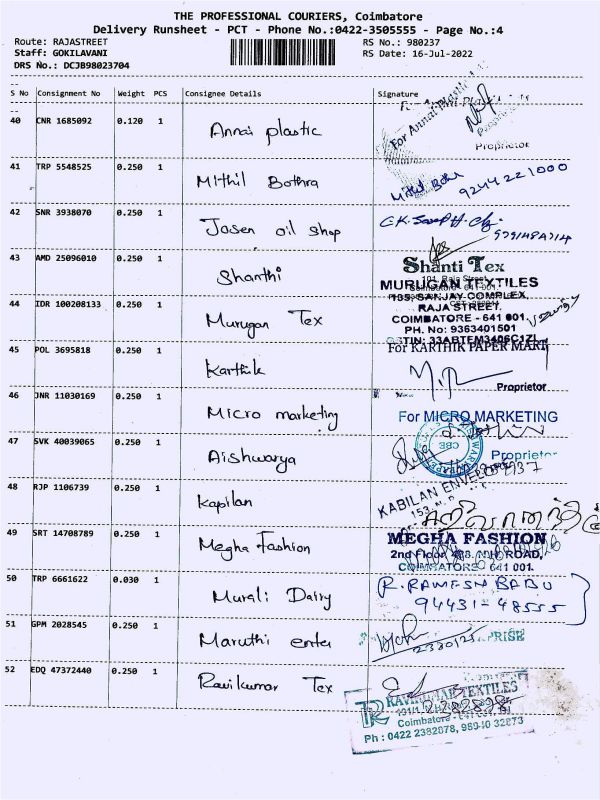 THE PROFESSIONAL COURIERS, Coimbatore
Delivery Runsheet - PCT - Phone No.:0422-3505555 - Page No.:4
Route: RAJASTREET RS No.: 980237
Staff: GOKILAVANI RS Date: 16-Jul-2022
DRS No.: DCJB98023704
S No Consignment No Weight PCS Consignee Details Signature
40 CNR 1685092 0.120 1 Annai plastic For Annai Plastic
Proprietor
41 TRP 5548525 0.250 1 Mithil Bothra Mithil Bothra 9244221000
42 SNR 3938070 0.250 1 Josen oil shop
43 AMD 25096010 0.250 1 Shanthi Shanti Tex
MURUGAN TEXTILES
135, SANJAY COMPLEX,
RAJA STREET.
44 IDR 100208133 0.250 1 Murugan Tex COIMBATORE - 641 001.
PH. No: 9363401501
GSTIN: 33ABTEM3406C1ZL
45 POL 3695818 0.250 1 Karthik For KARTHIK PAPER MART
Proprietor
46 JNR 11030169 0.250 1 Micro marketing For MICRO MARKETING
47 SVK 40039065 0.250 1 Aishwarya Proprietor
CBE
48 RJP 1106739 0.250 1 Kapilan KABILAN ENVELOPES
153
49 SRT 14708789 0.250 1 Megha Fashion MEGHA FASHION
2nd Floor ROAD,
COIMBATORE 641 001.
50 TRP 6661622 0.030 1 Murali Dairy R. RAMESH BABU
94431-48555
51 GPM 2028545 0.250 1 Maruthi enter PRISE
2330125
52 EDQ 47372440 0.250 1 Ravikumar Tex RAVIKUMAR TEXTILES
Coimbatore - 641 001,
Ph : 0422 2382878, 98940 32873